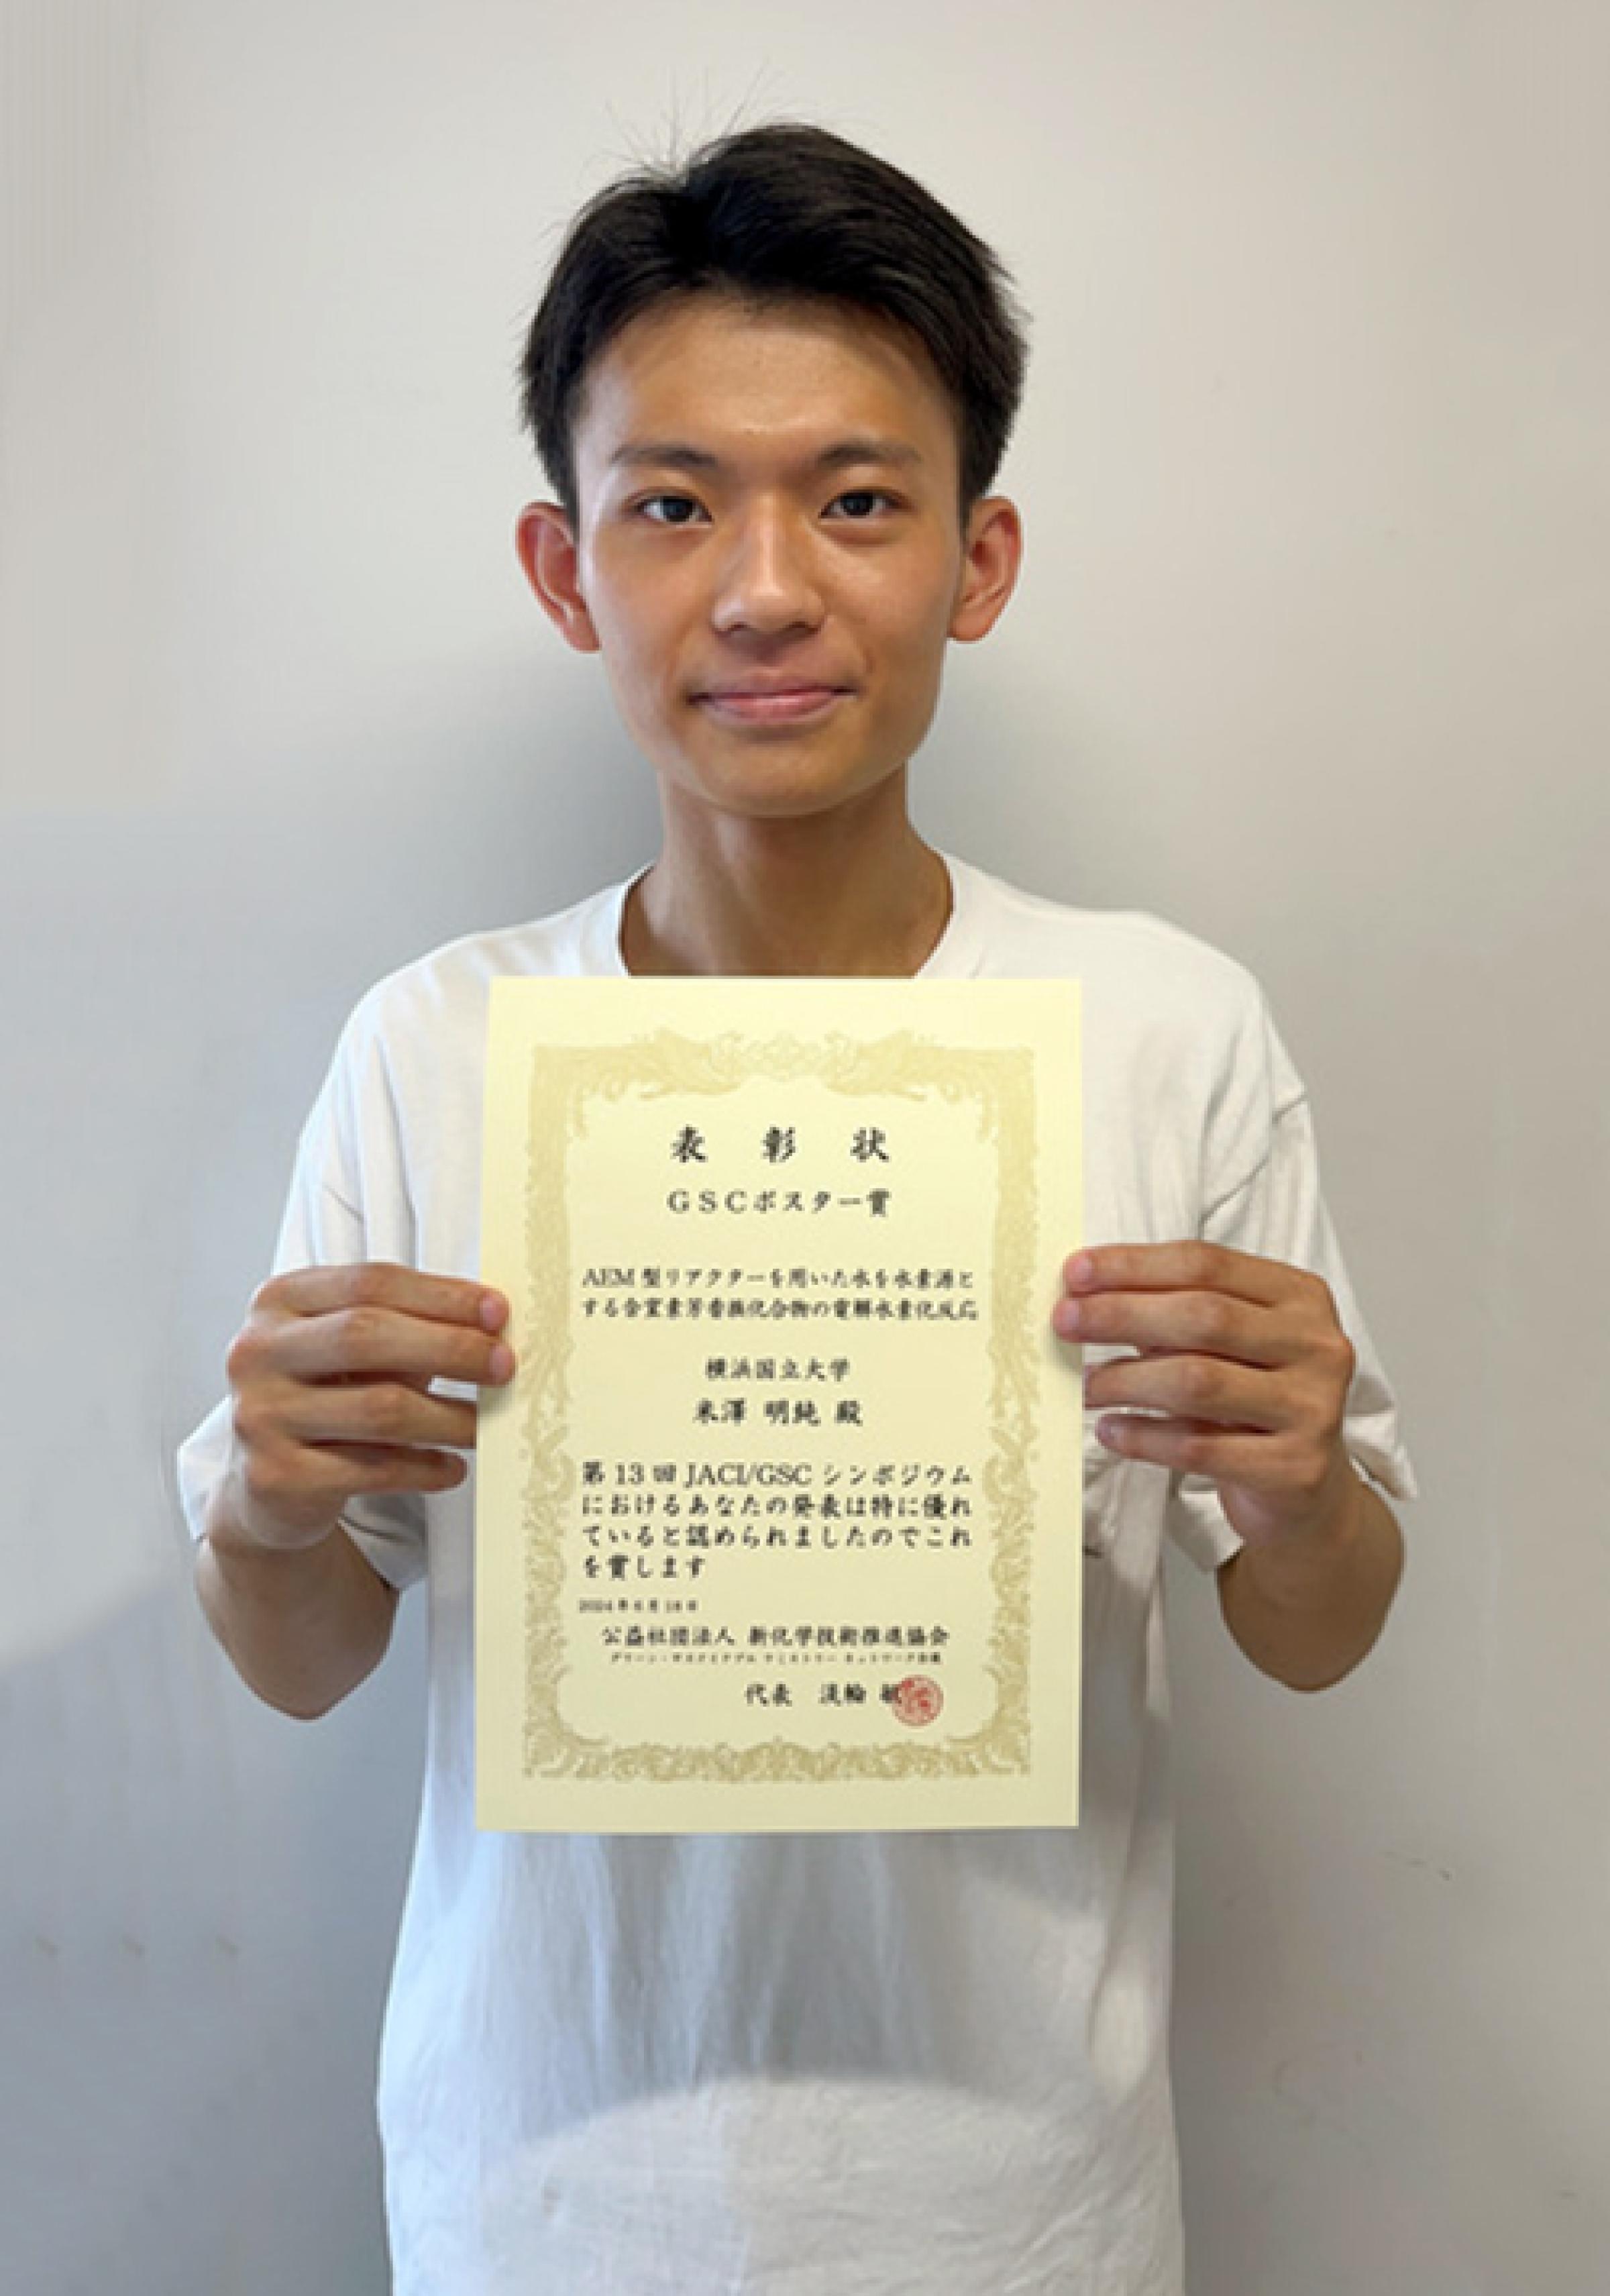 表彰状
GSCポスター賞
AEM型リアクターを用いた水を水素源と
する含窒素芳香族化合物の電解水素化反応
横浜国立大学
米澤 明純 殿
第13回 JACI/GSC シンポジウム
におけるあなたの発表は特に優れ
ていると認められましたのでこれ
を賞します
2024年6月18日
公益社団法人 新化学技術推進協会
グリーン・サステイナブル ケミストリー ネットワーク会議
代表 淡輪 敏